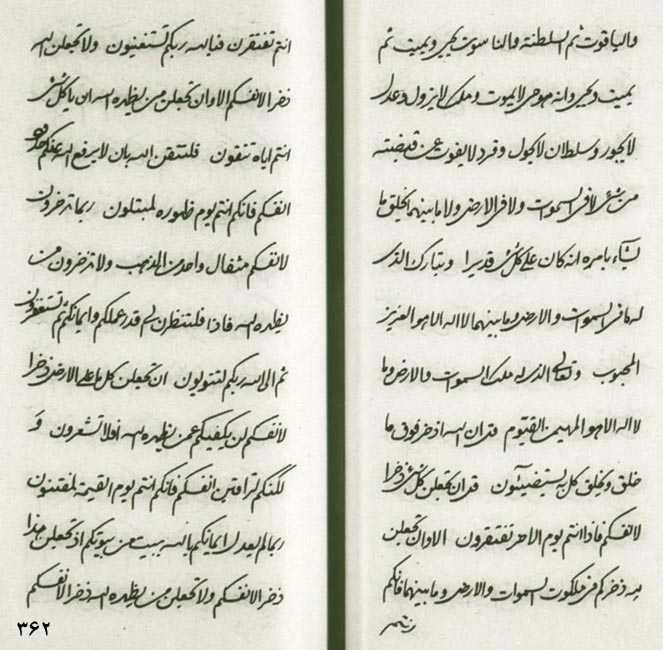 والیاقوت ثم السلطنة والناسوت یحیی ویمیت ثم
یمیت ویحیی وانه هو حی لایموت وملک لایزول وعدل
لایجور وسلطان لایحول وفرد لایفوت عن قبضته
من شیء لا فی السموات ولا فی الارض ولا ما بینهما یخلق ما
یشاء بامره انه کان علی کل شیء قدیرا وتبارک الذی
له ما فی السموات والارض وما بینهما لا اله الا هو العزیز
المحبوب وتعالی الذی له ملک السموات والارض وما
لا اله الا هو المهیمن القیوم قل ان الله اذخر فوق ما
خلق ویخلق کل به یستضیئون قل ان تجعلن کل شیء ذخرا
لانفسکم فاذا انتم یوم الاخر تفتقرون الا وان تجعلن
لله ذخرکم فی ملکوت السموات والارض وما بینهما فانکم
انتم
انتم تفتقرن فبالله ربکم تستغنیون ولا تجعلن الله
ذخرا لانفسکم الا وان تجعلن من یظهره الله ان یا کل شیء
انتم ایاه تتقون فلتتقن الله بان لا یرفع الله عنکم
انفسکم فانکم انتم یوم ظهوره لمبتلون ربما تذخرون
لانفسکم مثقال واحد من الذهب ولا تذخرون من
یظهره الله فاذا فلتنظرن لی قدر عملکم وایمانکم ثم تستغفرون
ثم الی الله ربکم لتتوبون ان تجعلن کل ما علی الارض ذخرا
لانفسکم لن یکفینکم عمن یظهره الله افلا تشعرون و
لکنکم لتراقبن انفسکم فانکم انتم یوم القیمة لمفتنون
ربما لم یعدل ایمانکم بالله ببیت من بیوتکم اذ تجعلن هذا
ذخرا لانفسکم ولا تجعلن من یظهره الله ذخرا لانفسکم
۳۶۲